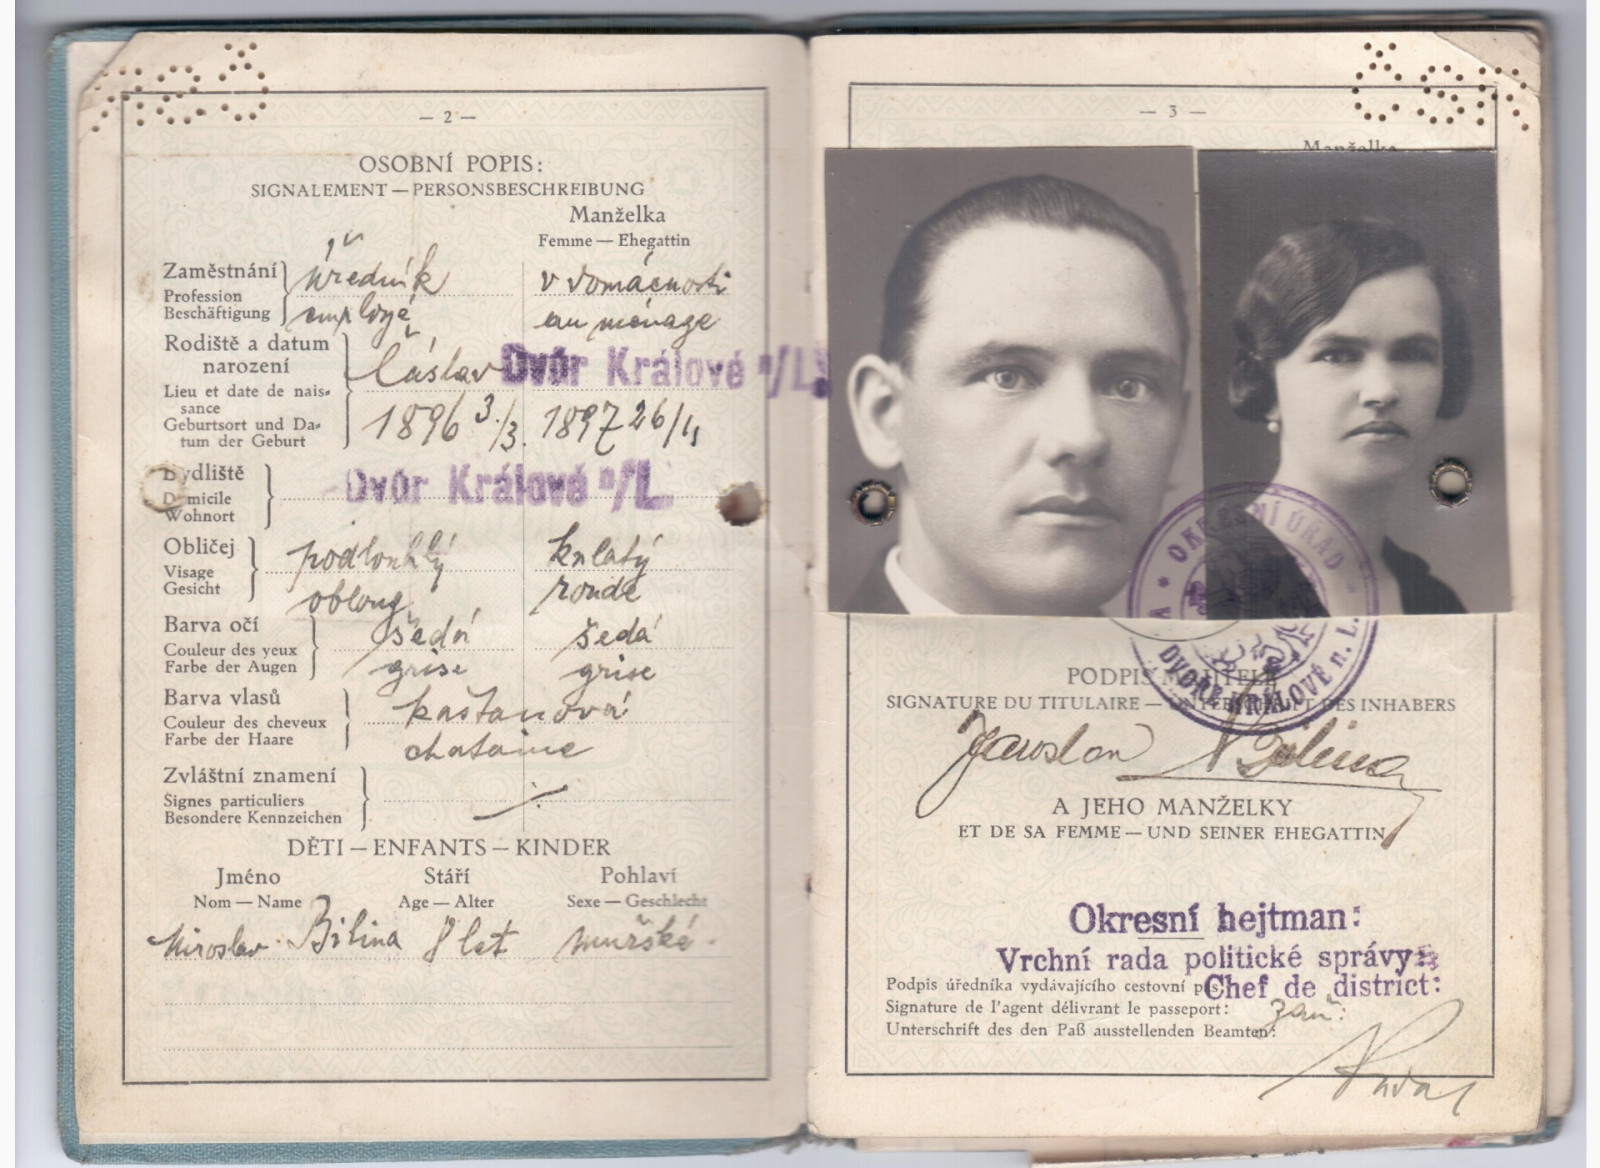 ČSR
— 2 —
OSOBNÍ POPIS:
SIGNALEMENT — PERSONSBESCHREIBUNG
Manželka
Femme — Ehegattin
Zaměstnání
Profession
Beschäftigung
úředník
employé
v domácnosti
au ménage
Rodiště a datum
narození
Lieu et date de nais-
sance
Geburtsort und Da-
tum der Geburt
Čáslav
Dvůr Králové n/L.
1896 3./3.
1897 26/11
Bydliště
Domicile
Wohnort
Dvůr Králové n/L.
Obličej
Visage
Gesicht
podlouhlý
oblong
kulatý
ronde
Barva očí
Couleur des yeux
Farbe der Augen
šedá
grise
šedá
grise
Barva vlasů
Couleur des cheveux
Farbe der Haare
kaštanová
chataine
Zvláštní znamení
Signes particuliers
Besondere Kennzeichen
DĚTI — ENFANTS — KINDER
Jméno
Stáří
Pohlaví
Nom — Name
Age — Alter
Sexe — Geschlecht
Miroslav Bílina 8 let mužské
ČSR
— 3 —
Manželka
OKRESNÍ ÚŘAD
DVOŘE KRÁLOVÉ n. L.
PODPIS
SIGNATURE DU TITULAIRE — UNTERSCHRIFT DES INHABERS
Jaroslav Bílina
A JEHO MANŽELKY
ET DE SA FEMME — UND SEINER EHEGATTIN
Okresní hejtman:
Vrchní rada politické správy
Podpis úředníka vydávajícího cestovní pas
Chef de district:
Signature de l'agent délivrant le passeport:
Unterschrift des den Paß ausstellenden Beamten: